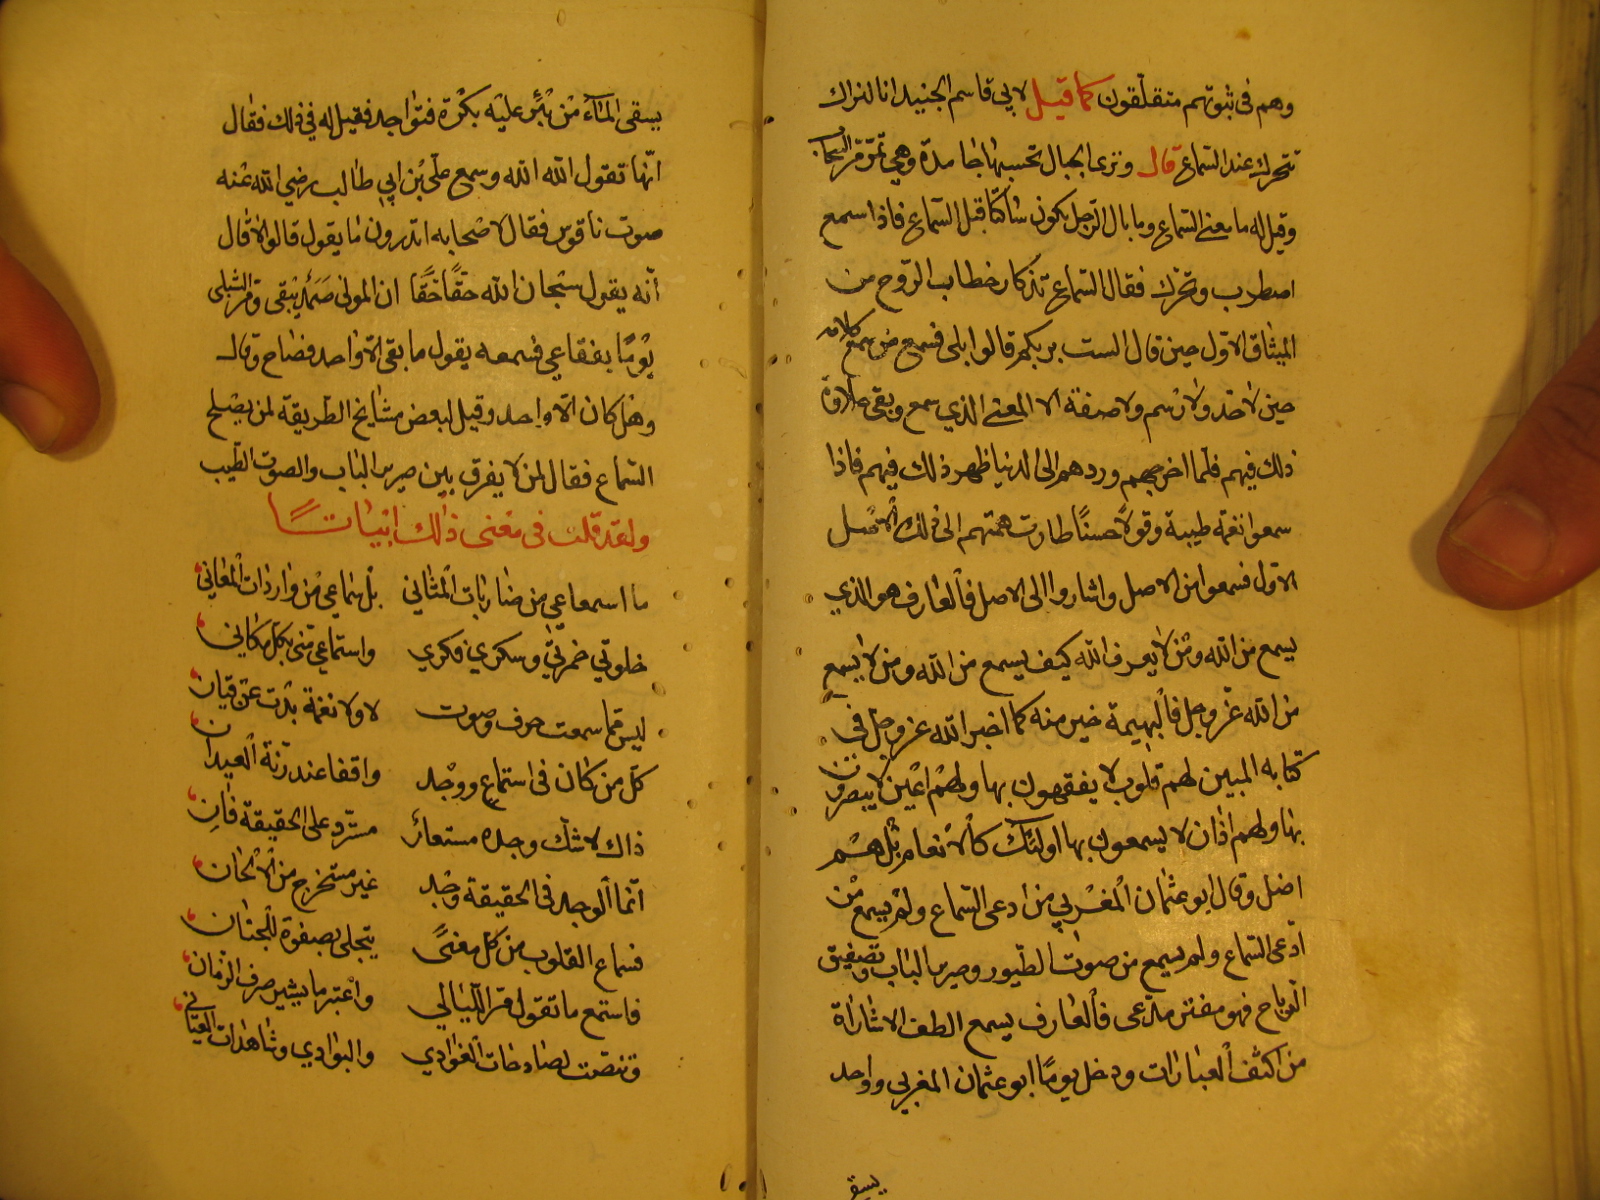 وهم فى ثبوتهم متقلقون كما قيل لابي قاسم الجنيد انا لنراك
تتحرك عند السماع قال وترى الجبال تحسبها جامدة وهي تمر مر السحاب
وقيل له ما معنى السماع وما بال الرجل يكون ساكتا قبل السماع فاذا سمع
اضطرب وتحرك فقال السماع تذكار خطاب الروح من
الميثاق الاول حين قال الست بربكم قالوا بلى فسمع من سمع كلامه
حين لا حد ولا رسم ولا صفة الا المعنى الذي سمع وبقى حلاوة
ذلك فيهم فلما اخرجهم وردهم الى الدنيا ظهر ذلك فيهم فاذا
سمعوا نغمة طيبة وقولا حسنا طارت همتهم الى ذلك الاصل
الاول فسمعوا من الاصل واشاروا الى الاصل فالعارف هو الذي
يسمع من الله ومن لا يعرف الله كيف يسمع من الله ومن لا يسمع
من الله عز وجل فالبهيمة خير منه كما اخبر الله عز وجل فى
كتابه المبين لهم قلوب لا يفقهون بها ولهم اعين لا يبصرون
بها ولهم اذان لا يسمعون بها اولئك كالانعام بل هم
اضل وقال ابو عثمان المغربي من ادعى السماع ولم يسمع من
ادعى السماع ولم يسمع من صوت الطيور وصرير الباب وتصفيق
الرياح فهو مفتر مدعى فالعارف يسمع الطف الاشاراة
من اكثف العبارات ودخل يوما ابو عثمان المغربي وواحد
يسقى
يسقى الماء من بئر عليه بكرة فتواجد فقيل له في ذلك فقال
انها تقول الله الله وسمع على بن ابي طالب رضي الله عنه
صوت ناقوس فقال لاصحابه اتدرون ما يقول قالوا لا قال
انه يقول سبحان الله حقا حقا ان المولى صمد يبقى ومر الشبلى
يوما بفقاعي فسمعه يقول ما بقى الا واحد فصاح وقال
وهل كان الا واحد وقيل لبعض مشايخ الطريقة لمن يصلح
السماع فقال لمن لا يفرق بين صرير الباب والصوت الطيب
ولقد قلت فى معنى ذلك ابياتا
ما اسماعي من ضاربات المثاني بل سماعي من واردات المعاني
خلوتي خمرتي وسكري فكري واستماعي منى بكل مكاني
ليس مما سمعت حرف وصوت لا ولا نغمة بدت عن قيان
كل من كان فى استماع ووجد واقفا عند رنة العيدان
ذاك لا شك وجده مستعار مسترد على الحقيقة فان
انما الوجد فى الحقيقة وجد غير مستخرج من الالحان
فسماع القلوب من كل معنى يتجلى بصفوة للجنان
فاستمع ما تقول مر الليالي واعتبر ما يشير صرف الزمان
وتنصت لصادحات الغوادي والبوادي وشاهدات